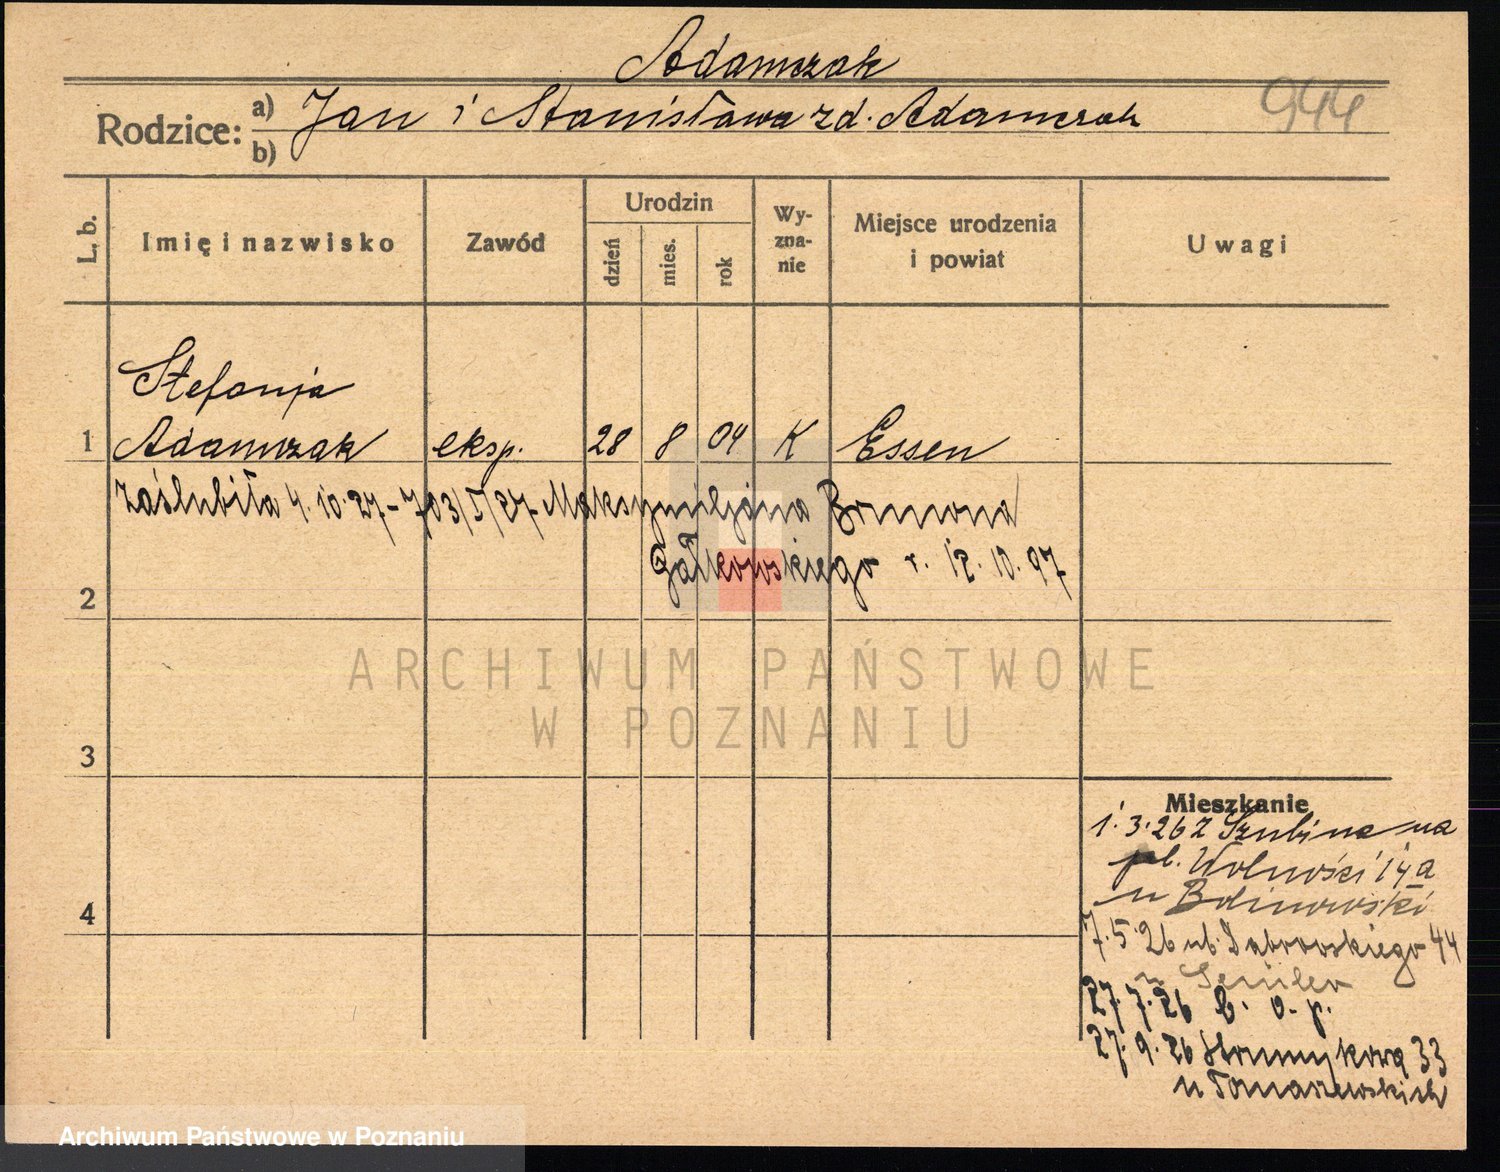 Adamczak
Rodzice: a) Jan i Stanisława zd. Adamczak
b)
944
L. b.
Imię i nazwisko
Zawód
Urodzin
dzień
mies.
rok
Wy-
zna-
nie
Miejsce urodzenia
i powiat
Uwagi
Stefanja
1 Adamczak eksp. 28 8 04 K Essen
zaślubiła 4.10.27 – 703/I/27 Maksymiljana Brunona
Gałkowskiego r. 12.10.97
2
3
4
ARCHIWUM PAŃSTWOWE
W POZNANIU
Mieszkanie
1.3.26 z Szubina na
pl. Wolności 14a
u
7.5.26 ul. Dąbrowskiego 44
u
27.7.26 b. o. p.
27.9.26 33
u Tomaszewskich
Archiwum Państwowe w Poznaniu